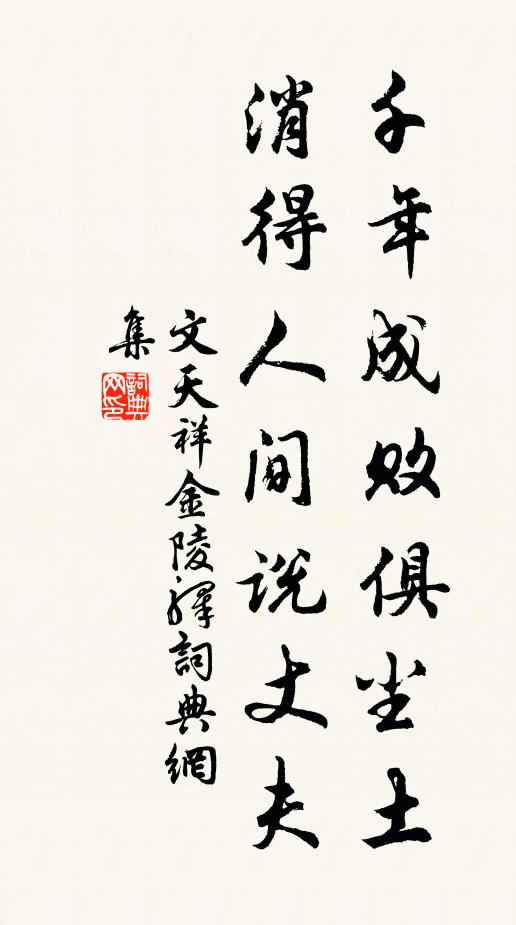 千年成败俱尘土
消得人间说丈夫
文天祥金陵驛詞典網
集
詞典
网印